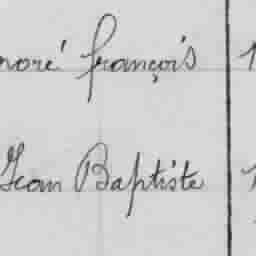 noré françois 1
Jean Baptiste 1